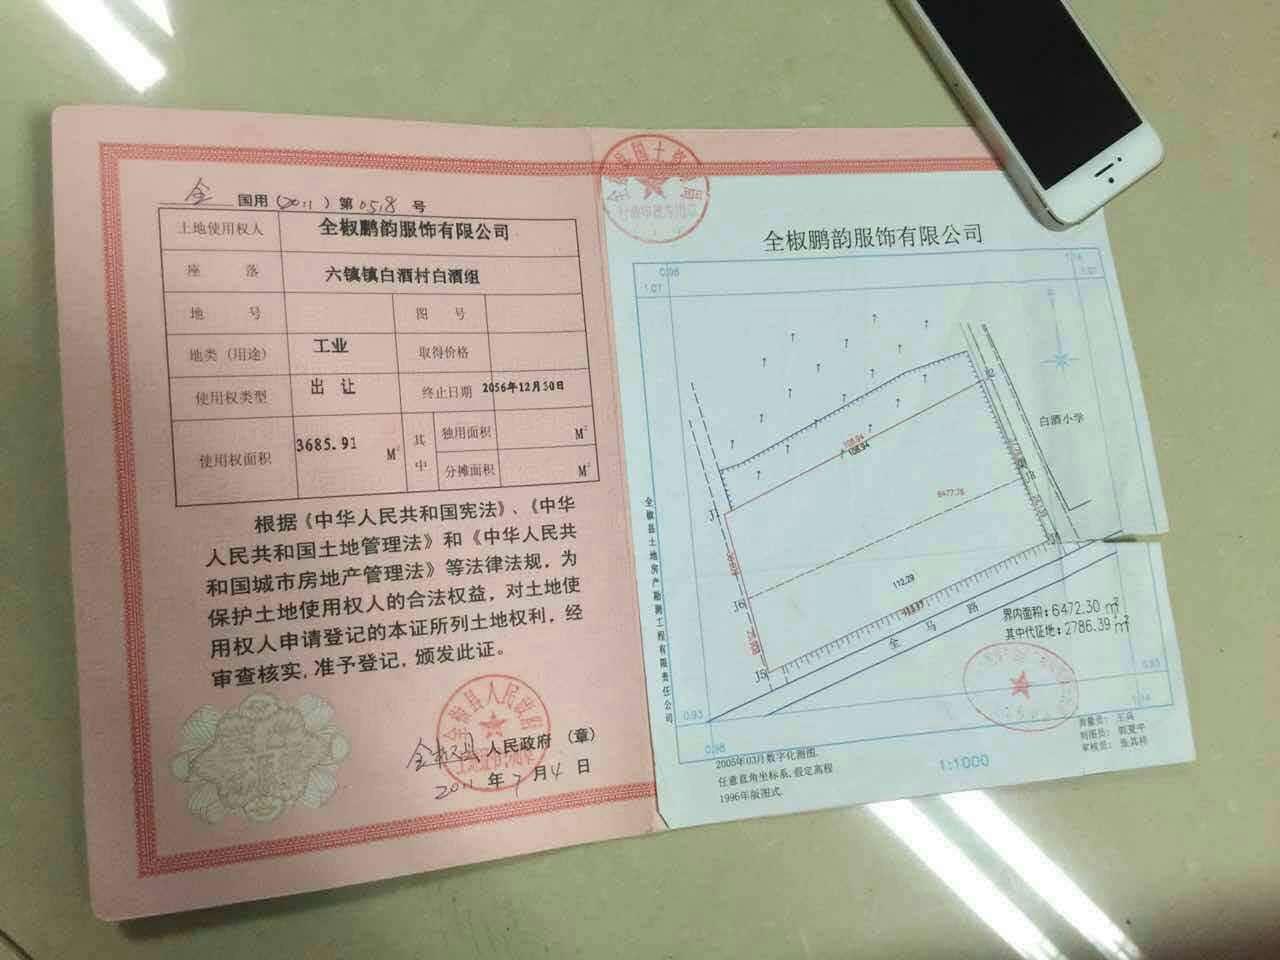 全 国用（2011）第0518号
土地使用权人 全椒鹏韵服饰有限公司
座 落 六镇镇白酒村白酒组
地 号 图 号
地类（用途） 工业 取得价格
使用权类型 出 让 终止日期 2056年12月30日
使用权面积 3685.91 M² 其中 独用面积 M²
分摊面积 M²
根据《中华人民共和国宪法》、《中华
人民共和国土地管理法》和《中华人民共
和国城市房地产管理法》等法律法规，为
保护土地使用权人的合法权益，对土地使
用权人申请登记的本证所列土地权利，经
审查核实，准予登记，颁发此证。
全椒县人民政府
全椒县 人民政府（章）
2011年7月4日
全椒鹏韵服饰有限公司
0.98
1.07
1.14
1.07
北
J2
白酒小学
108.94
108.94
6477.76
J7
J8
J6
112.29
J5
J1
全 马 路
界内面积：6472.30 m²
其中代征地：2786.39 m²
全椒县土地房产勘测工程有限责任公司
0.93
0.98
0.93
1.14
2005年03月数字化测图.
任意直角坐标系,假定高程
1996年版图式.
1:1000
测量员： 王兵
制图员： 郭爱平
审核员： 张其祥